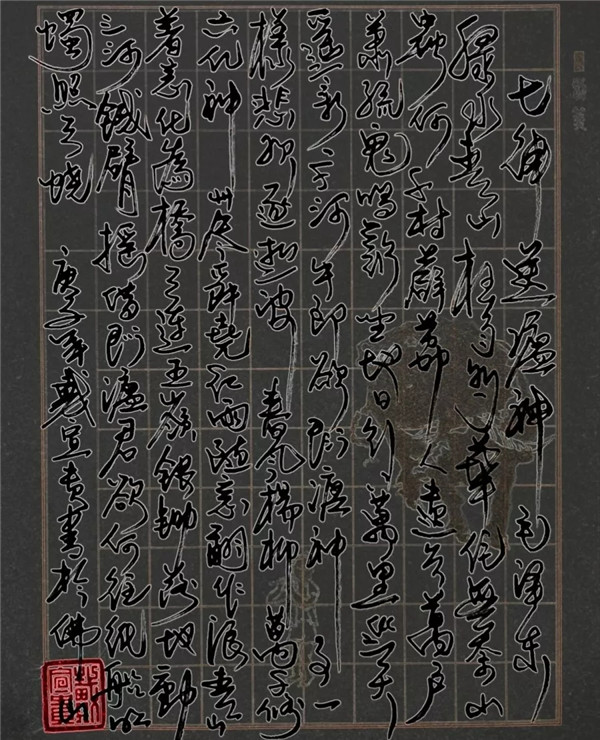 七律 送瘟神 毛泽东
绿水青山枉自多華佗無奈小
虫何千村薜荔人遗矢萬户
萧疏鬼唱歌坐地日行八萬里巡天
遥看一千河牛郎欲问瘟神事一
样悲欢逐逝波 春风杨柳萬千条
六亿神州尽舜尧红雨随意翻作浪青山
着意化為橋天连五岭银锄落地动
三河铁臂摇借问瘟君欲何往纸船明
燭照天烧 庚子年戴宣贵書於佛山